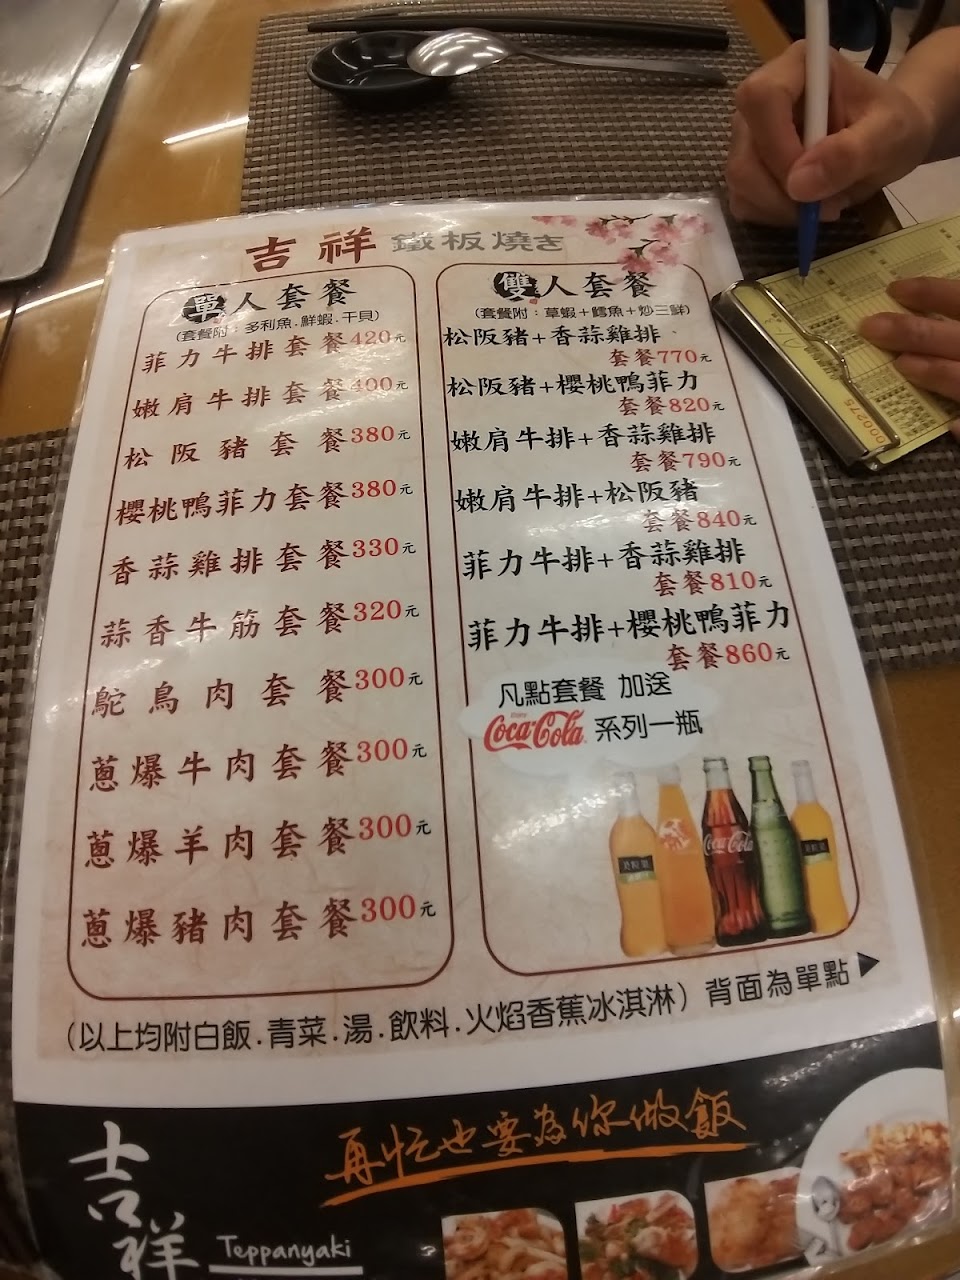 吉祥 鐵板燒き
單人套餐
(套餐附：多利魚.鮮蝦.干貝)
菲力牛排套餐420元
嫩肩牛排套餐400元
松阪豬套餐380元
櫻桃鴨菲力套餐380元
香蒜雞排套餐330元
蒜香牛筋套餐320元
鴕鳥肉套餐300元
蔥爆牛肉套餐300元
蔥爆羊肉套餐300元
蔥爆豬肉套餐300元
雙人套餐
(套餐附：草蝦+鱈魚+炒三鮮)
松阪豬+香蒜雞排
套餐770元
松阪豬+櫻桃鴨菲力
套餐820元
嫩肩牛排+香蒜雞排
套餐790元
嫩肩牛排+松阪豬
套餐840元
菲力牛排+香蒜雞排
套餐810元
菲力牛排+櫻桃鴨菲力
套餐860元
凡點套餐 加送
Coca-Cola 系列一瓶
Coca-Cola
(以上均附白飯.青菜.湯.飲料.火焰香蕉冰淇淋) 背面為單點▶
再忙也要為你做飯
吉祥
Teppanyaki